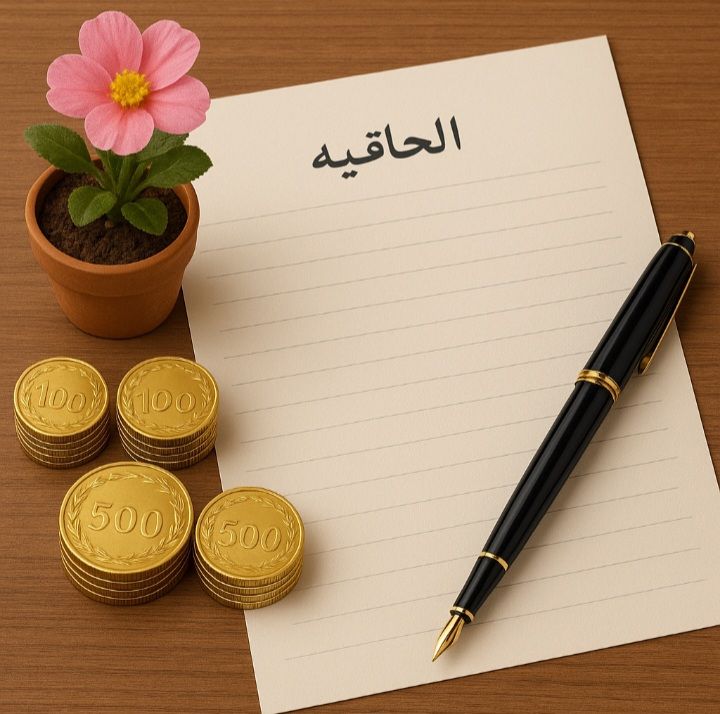 الحاقيه
100
100
500
500